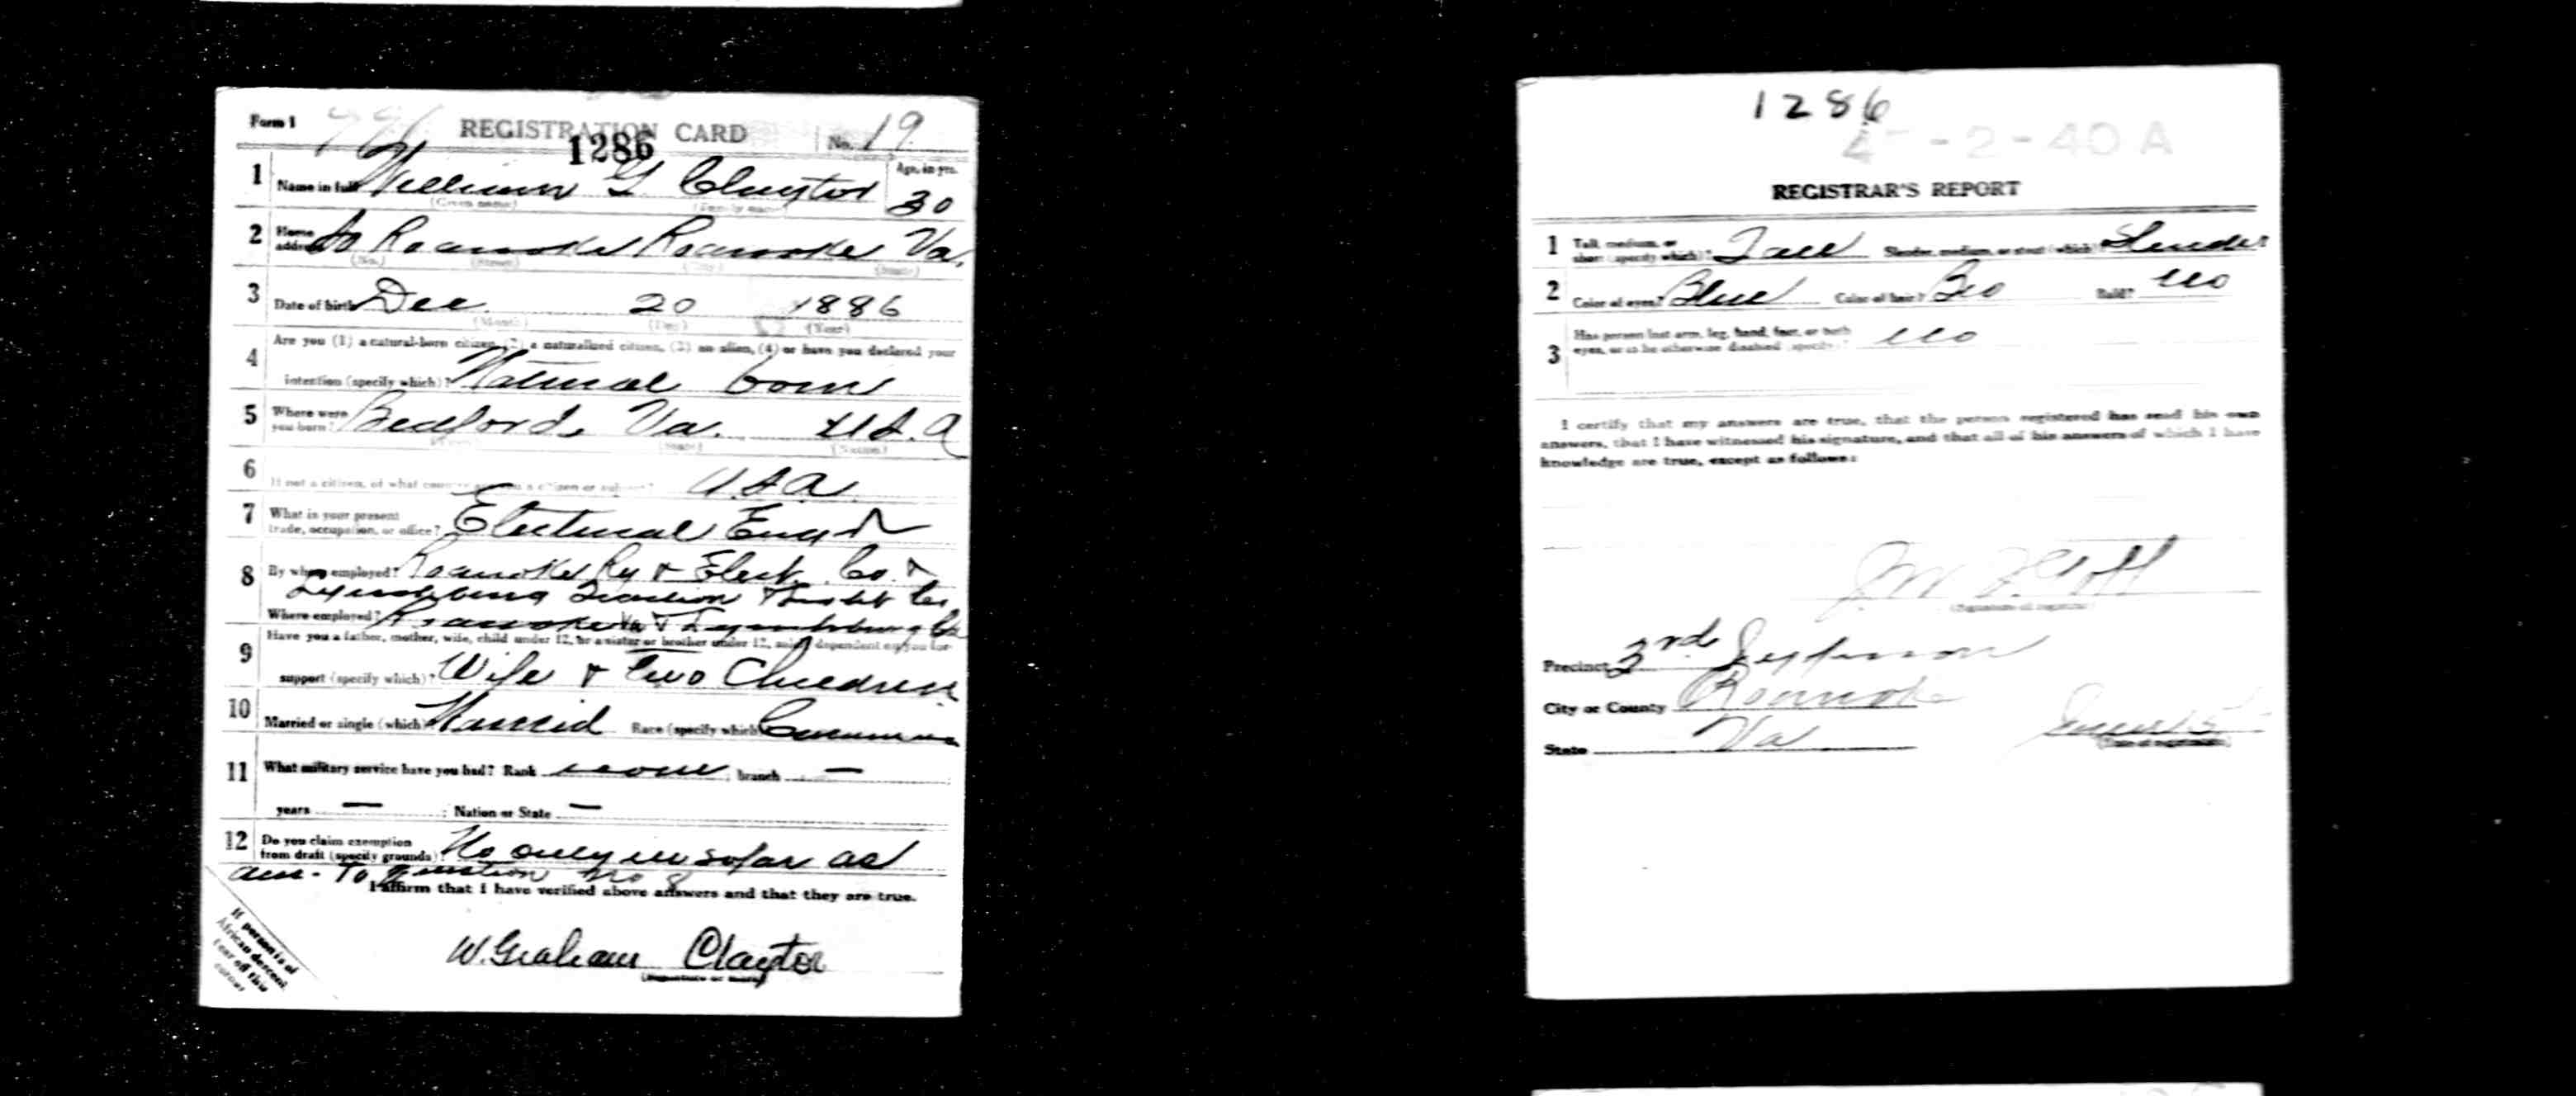 Form 1
REGISTRATION CARD
No. 19
1286
1 Name in full William G Claytor
(Given name) (Family name)
Age, in yrs. 30
2 Home address So Roanoke Roanoke Va.
(No.) (Street) (City) (State)
3 Date of birth Dec 20 1886
(Month) (Day) (Year)
4 Are you (1) a natural-born citizen, (2) a naturalized citizen, (3) an alien, (4) or have you declared your
intention (specify which)? Natural born
5 Where were you born? Bedford, Va. U.S.A
(State) (Nation)
6 If not a citizen, of what country are you a citizen or subject? U.S.A.
7 What is your present trade, occupation, or office? Electrical Engr
8 By whom employed? Roanoke Ry & Elect. Co. &
Lynchburg Traction & Light Co.
Where employed? Roanoke Va & Lynchburg Va
9 Have you a father, mother, wife, child under 12, or a sister or brother under 12, solely dependent on you for
support (specify which)? Wife & two Children
10 Married or single (which)? Married Race (specify which)? Caucasian
11 What military service have you had? Rank none ; branch —
years — ; Nation or State —
12 Do you claim exemption from draft (specify grounds)? No only in sofar as
ans- To question no 8
I affirm that I have verified above answers and that they are true.
W. Graham Claytor
(Signature or mark)
If person is of African descent, tear off this corner
1286
-2-40 A
REGISTRAR'S REPORT
1 Tall, medium, or short (specify which)? Tall Slender, medium, or stout (which)? Slender
2 Color of eyes? Blue Color of hair? Bro Bald? no
3 Has person lost arm, leg, hand, foot, or both eyes, or is he otherwise disabled (specify)? no
I certify that my answers are true, that the person registered has read his own
answers, that I have witnessed his signature, and that all of his answers of which I have
knowledge are true, except as follows:
(Signature of registrar)
Precinct 3rd Jefferson
City or County Roanoke
State Va
June 5
(Date of registration)